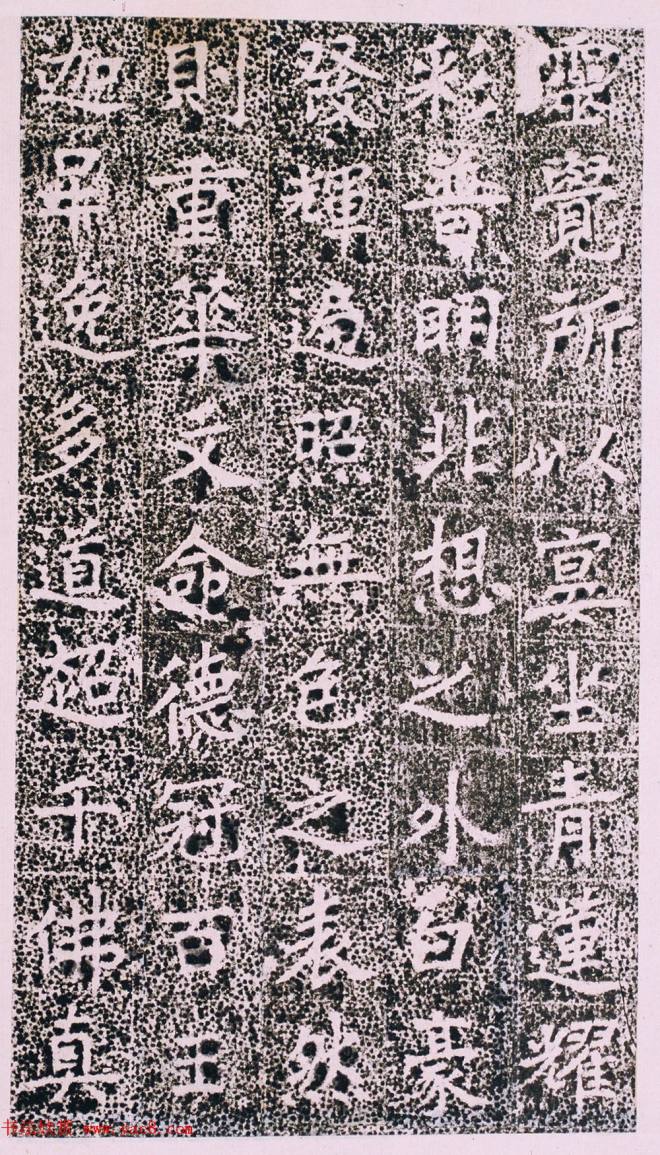 靈覺所以宴坐青蓮耀
彩普明非想之外白豪
發輝遍照無色之表然
則重華文命德冠百王
迦牟逸多道超千佛真
书法欣赏 www.yac8.com